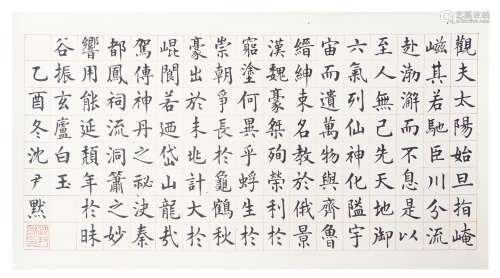 觀夫太陽始旦指崦
嵫其若馳巨川分流
赴渤澥而不息是以
至人無己先天地御
六氣列仙神化隘宇
宙而遺萬物與齊魯
縉紳束名教於俄景
漢魏豪桀殉榮利於
窮塗何異乎蜉生於
崇朝爭長於龜鶴秋
豪出於未兆計大於
崐閬若迺岱山龍哉
駕傳神丹之秘決秦
都鳳祠流洞簫之妙
響用能延頹年於昧
谷振玄廬白玉
乙酉冬沈尹默